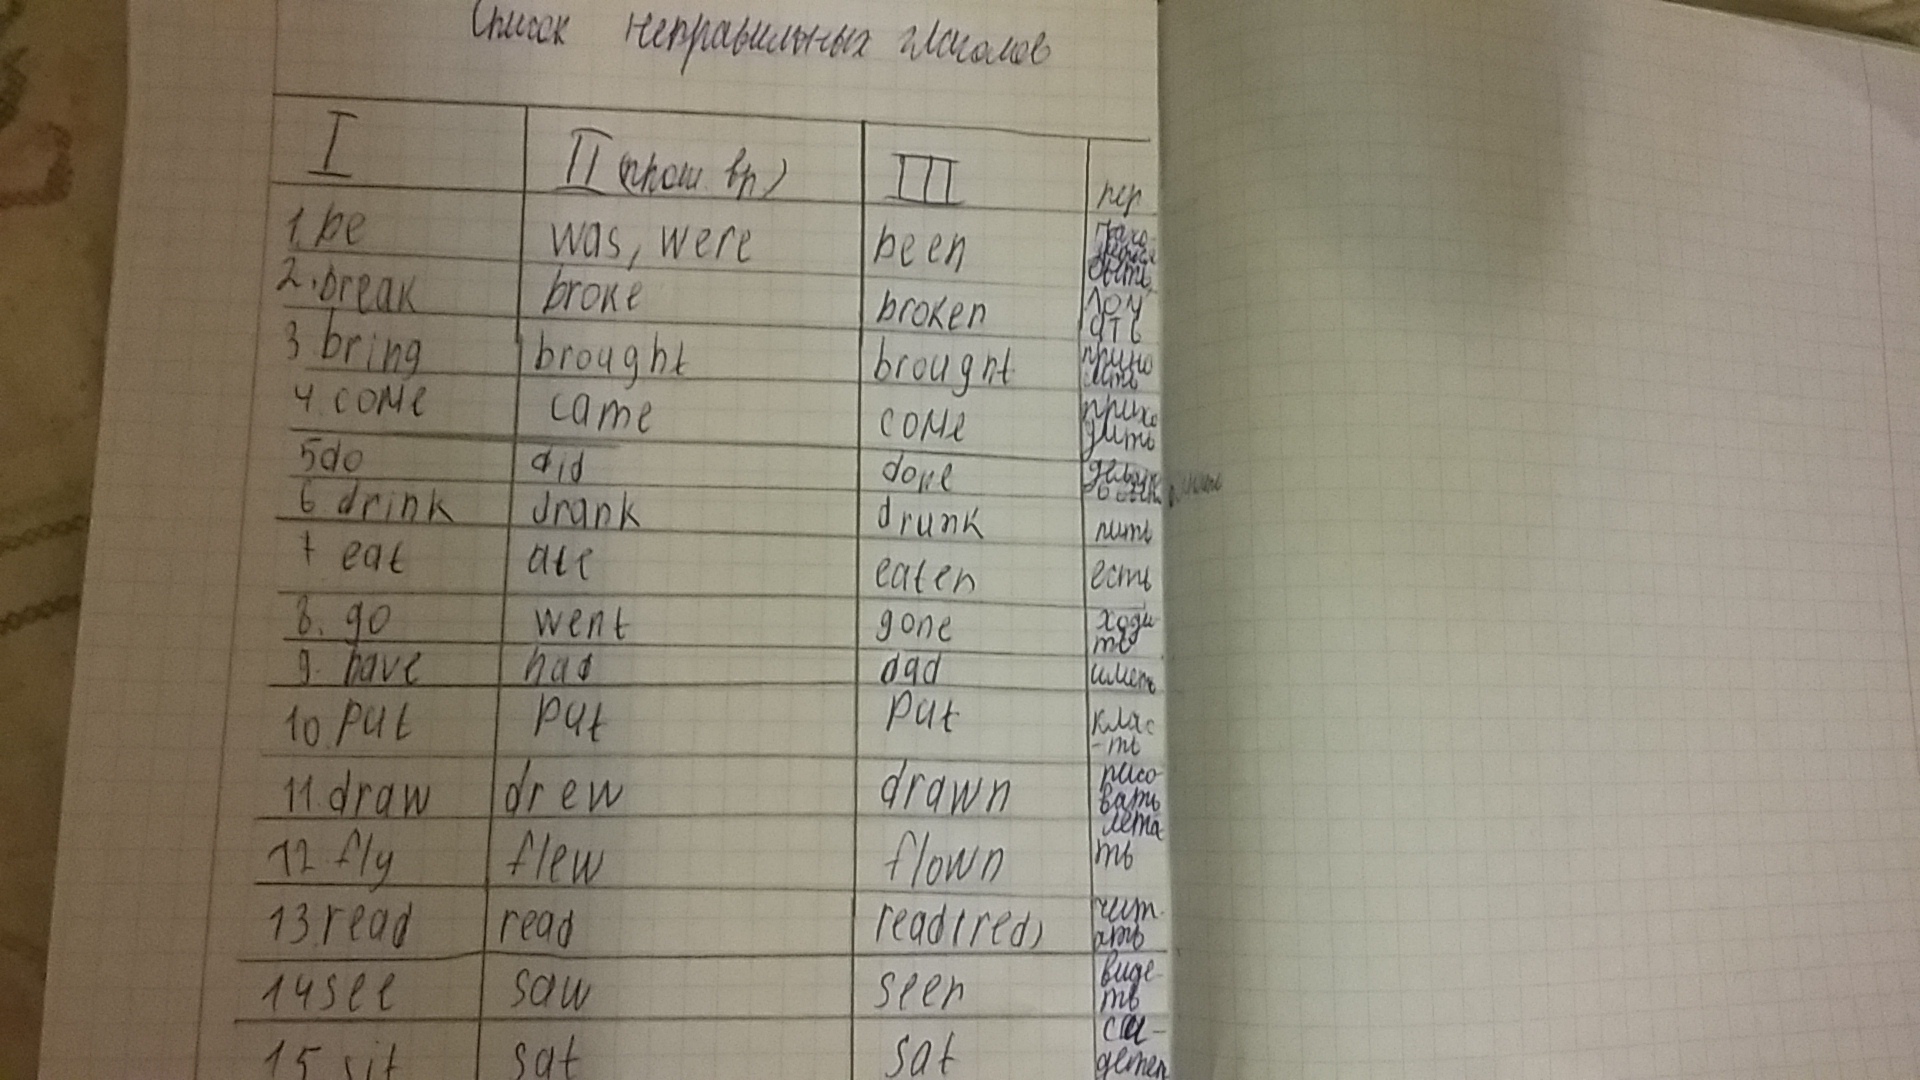 Список неправильных глаголов
I II (прош. вр) III пер
1. be was, were been быть
2. break broke broken лом ать
3 bring brought brought прино сить
4. come came come прихо дить
5 do did done
6 drink drank drunk пить
7 eat ate eaten есть
8. go went gone ходи ть
9. have had dad иметь
10 put put put клас -ть
11. draw drew drawn рисо вать
12 fly flew flown лета ть
13. read read read (red) чит- ать
14 see saw seen виде- ть
15 sit sat sat